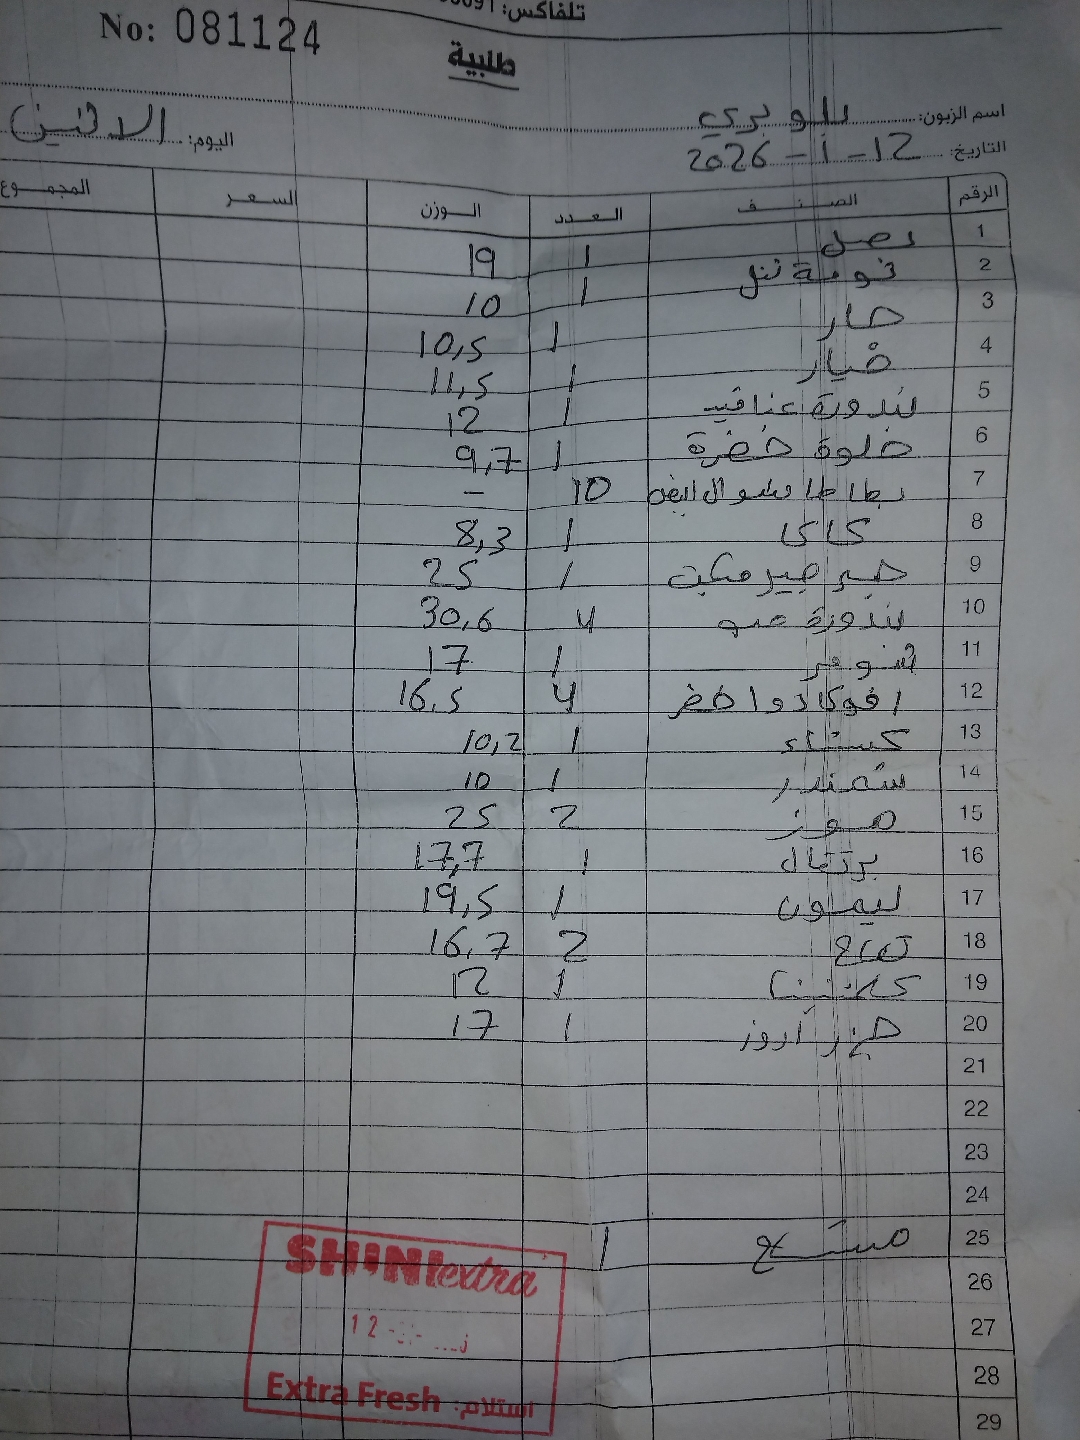 تلفاكس:
No: 081124
طلبية
اسم الزبون: بلو بري
اليوم: الاثنين
التاريخ: 12-1-2026
الرقم الصنف العدد الوزن السعر المجموع
1 بصل 1 19
2 ثومة تنل 1 10
3 حار 1 10,5
4 خيار 1 11,5
5 بندورة عناقيد 1 12
6 حلوة خضرة 1 9,7
7 بطاطا مشوال ابيض 10 -
8 كاكا 1 8,3
9 1 25
10 بندورة 4 30,6
11 شومر 1 17
12 افوكادو اخضر 4 16,5
13 كستناء 1 10,2
14 شمندر 1 10
15 موز 2 25
16 برتقال 1 17,7
17 ليمون 1 19,5
18 تفاح 2 16,7
19 كلمنتينا 1 12
20 جزر اروز 1 17
21
22
23
24
25 مشطح 1
26
27
28
29
SHINI extra
12
Extra Fresh استلام: